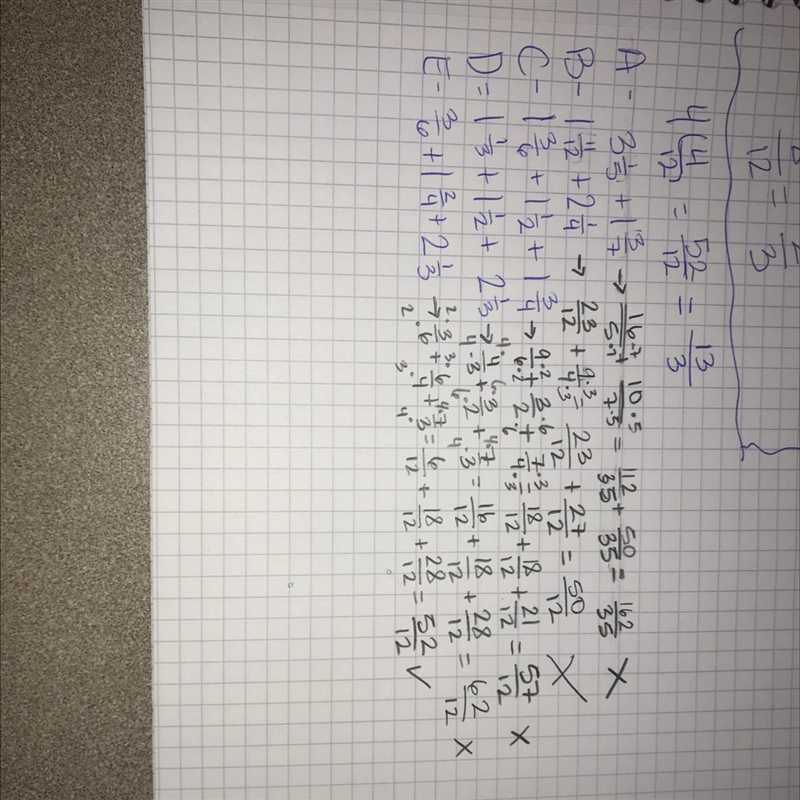 /12 = /3
4 4/12 = 52/12 = 13/3
A - 3 1/5 + 1 3/7 → 16·7/5·7 + 10·5/7·5 = 112/35 + 50/35 = 162/35 X
B - 1 11/12 + 2 1/4 → 23/12 + 9·3/4·3 = 23/12 + 27/12 = 50/12 X
C - 1 3/6 + 1 1/2 + 1 3/4 → 9·2/6·2 + 3·6/2·6 + 7·3/4·3 = 18/12 + 18/12 + 21/12 = 57/12 X
D = 1 1/3 + 1 1/2 + 2 1/3 → 4·4/4·3 + 6·3/6·2 + 4·7/4·3 = 16/12 + 18/12 + 28/12 = 62/12 X
E - 3/6 + 1 2/4 + 2 1/3 → 2·3/2·6 + 3·6/3·4 + 4·7/4·3 = 6/12 + 18/12 + 28/12 = 52/12 ✓